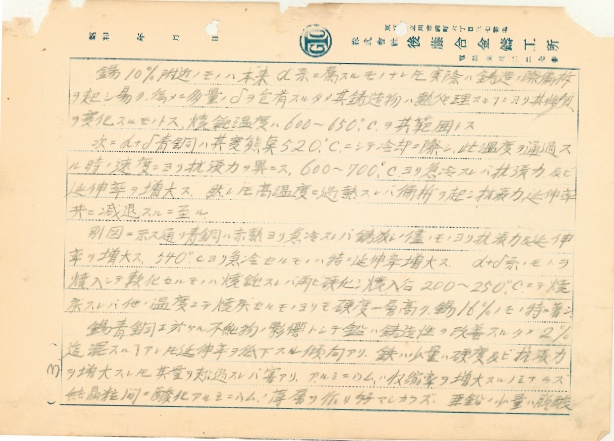 昭和　年　月　日
GTC
株式會社 後藤合金鑄工所
錫10%附近ノモノハ本来α系ニ属スルモノナレ圧実際ハ鋳造ノ際偏析
ヲ起シ易ク、為メニ多量ノδヲ含有スルタメ其鋳造物ハ熱処理スルコトニヨリ其性質
ヲ変化スルモノトス、焼鈍温度ハ600〜650℃ヲ其範囲トス
次ニα+δ青銅ハ共変態点520℃ニシテ冷却ノ際シ、此温度ヲ通過ス
ル時ノ速度ニヨリ抗張力ヲ異ニス、600〜700℃ヨリ急冷スレバ抗張力及ビ
延伸率ヲ増大ス、然レ圧高温度ニ過熱スレバ偏析ヲ起シ抗張力延伸率
共ニ減退スルニ至ル
別図ニ示ス通リ青銅ハ赤熱ヨリ急冷スレバ鋳放シ儘ノモノヨリ抗張力及延伸
率ヲ増大ス、540℃ヨリ急冷セルモノハ特ニ延伸率増大ス α+δ系ノモノヲ
焼入シテ軟化セルモノハ焼鈍スレバ再ビ硬化シ焼入后200〜250℃ニテ焼
戻スレバ他ノ温度ニテ焼戻セルモノヨリモ硬度一層高ク、錫16%ノモノ特ニ著シ
錫青銅ニ於ケル不純物ノ影響トシテ鉛ハ鋳造性ヲ改善スルタメ2%
迄混スルコトアレ圧延伸率ヲ低下スル傾向アリ、鉄ハ小量ハ硬度及ビ抗張力
ヲ増大スレ圧其量ヲ超過スレバ害アリ、アルミニウムハ収縮率ヲ増大スルノミナラズ
結晶粒間ニ酸化アルミニウムノ薄層ヲ作リ好マシカラズ、亜鉛ハ小量ハ脱酸
(3)